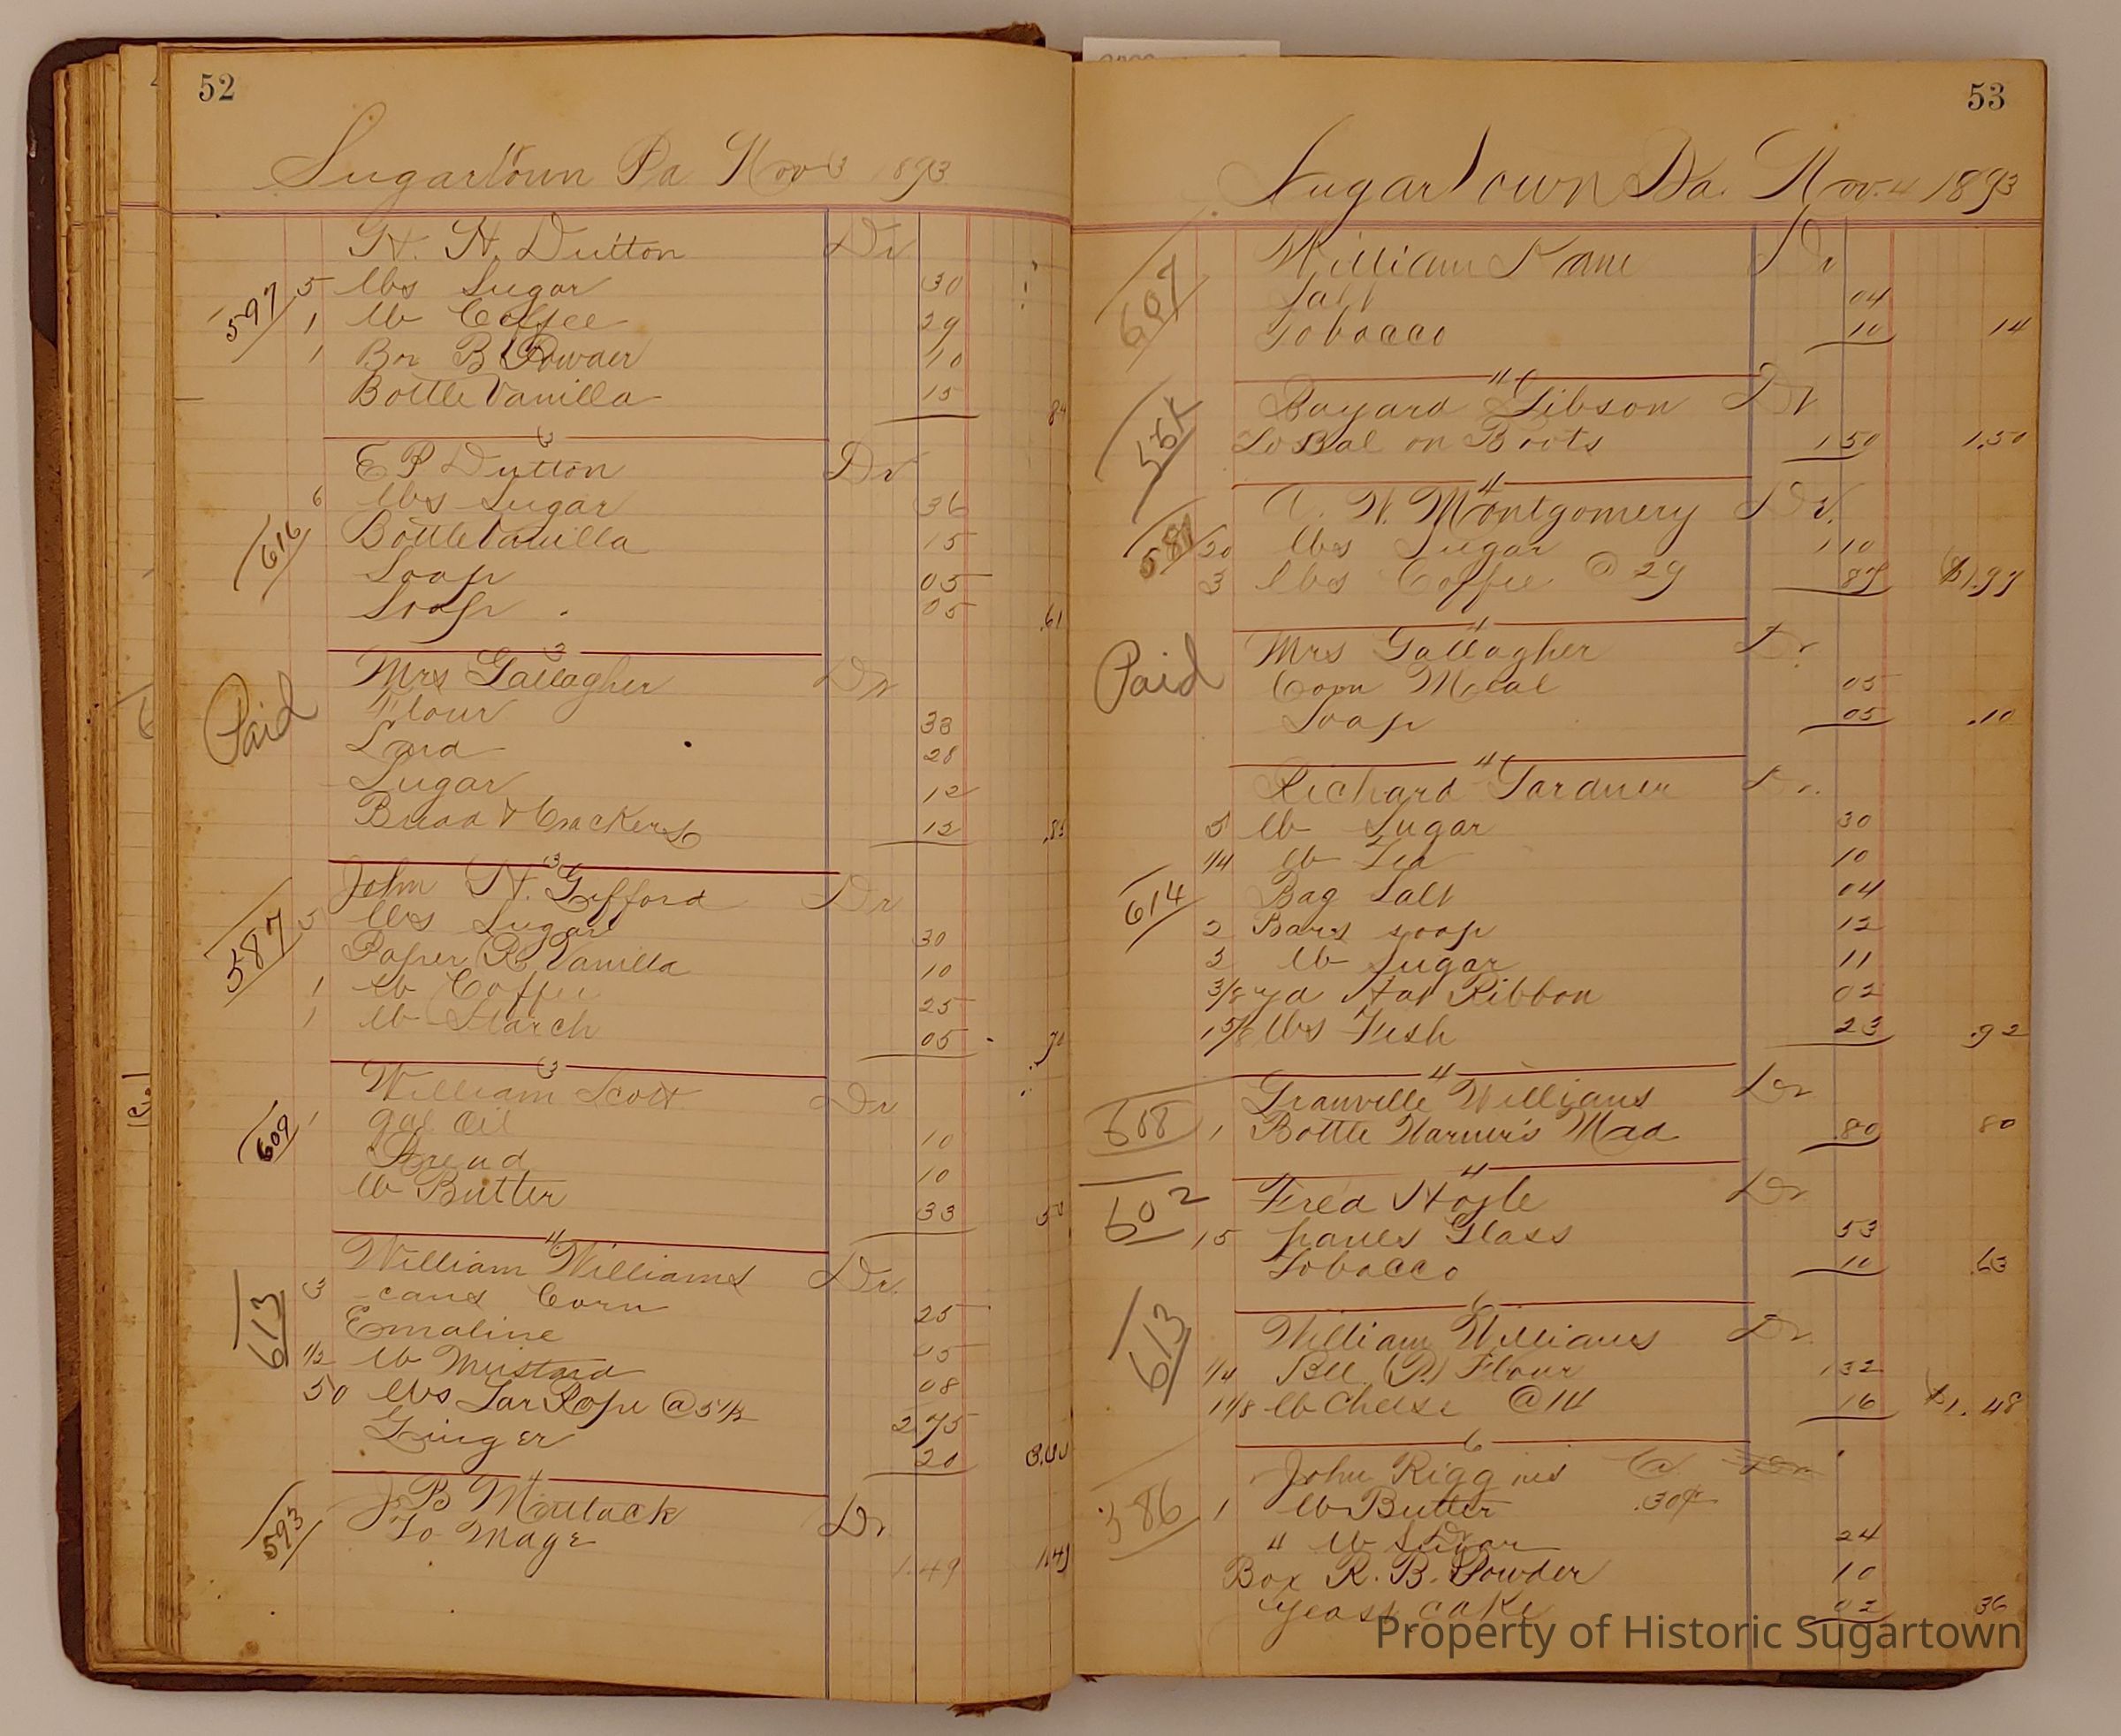 52
Sugartown Pa Nov 3 1893
H. H. Dutton Dr
597 5 lbs Sugar 30
1 lb Coffee 29
1 Box B Powder 10
Bottle Vanilla 15 84
3
E P Dutton Dr
616 6 lbs Sugar 36
Bottle Vanilla 15
Soap 05
Soap 05 .61
3
Mrs Gallagher Dr
Paid Flour 33
Lard 28
Sugar 12
Bread & Crackers 12 .85
3
John H. Gifford Dr
587 5 lbs Sugar 30
Paper R Vanilla 10
1 lb Coffee 25
1 lb Starch 05 .70
3
William Scott Dr
609 1 gal Oil 10
Bread 10
lb Butter 33 53
4
William Williams Dr.
613 3 cans Corn 25
Emaline 05
1/2 lb Mustard 08
50 lbs Tar Rope @ 5 1/2 2 75
Ginger 20
4
J. B Matlack Dr
593 To Mdse 1.49 1.49
53
Sugartown Pa. Nov. 4 1893
607 William Kane Dr
Salt 04
Tobacco 10 14
4
Bayard Gibson Dr
To Bal on Boots 1 50 1.50
4
W. Montgomery Dr.
20 lbs Sugar 1 10
3 lbs Coffee @ 29 87 $1.97
4
Paid Mrs Gallagher Dr.
Corn Meal 05
Soap 05 .10
4
Richard Gardner Dr.
5 lb Sugar 30
1/4 lb Tea 10
614 Bag Salt 04
2 Bars soap 12
3 lb Sugar 11
3/8 yd Hat Ribbon 02
1 5/8 lbs Fish 23 .92
4
Granville Williams Dr
608 1 Bottle Warner's Med .80 80
4
602 Fred Hoyle Dr
15 panes Glass 53
Tobacco 10 .63
6
613 William Williams Dr
1/4 Bll. (P.) Flour 1 32
1 1/8 lb Cheese @ 14 16 $1.48
6
John Riggins Cr
386 1 lb Butter .30¢
Dr
4 lb Sugar 24
Box R. B. Powder 10
Yeast cake 02 36
Property of Historic Sugartown